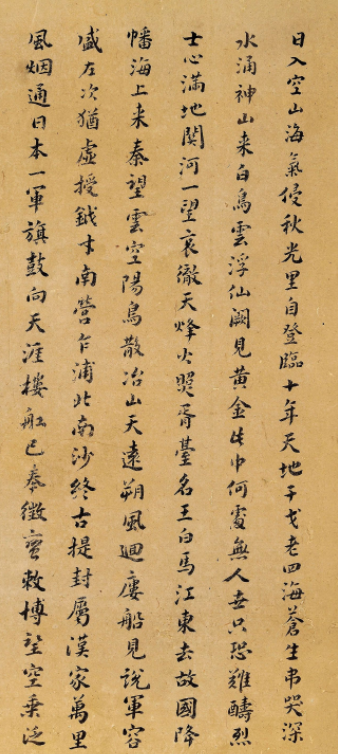 日入空山海氣侵秋光里自登臨十年天地干戈老四海蒼生弔哭深
水涌神山来白鳥雲浮仙闕見黃金此中何處無人世只恐難醻烈
士心滿地関河一望哀徹天烽火照胥臺名王白馬江東去故國降
幡海上来秦望雲空陽鳥散冶山天遠朔風迴樓船見説軍容
盛左次猶虛授鉞才南營乍浦北南沙終古提封屬漢家萬里
風烟通日本一軍旗鼓向天涯樓舡已奉徵蠻敕博望空乘泛